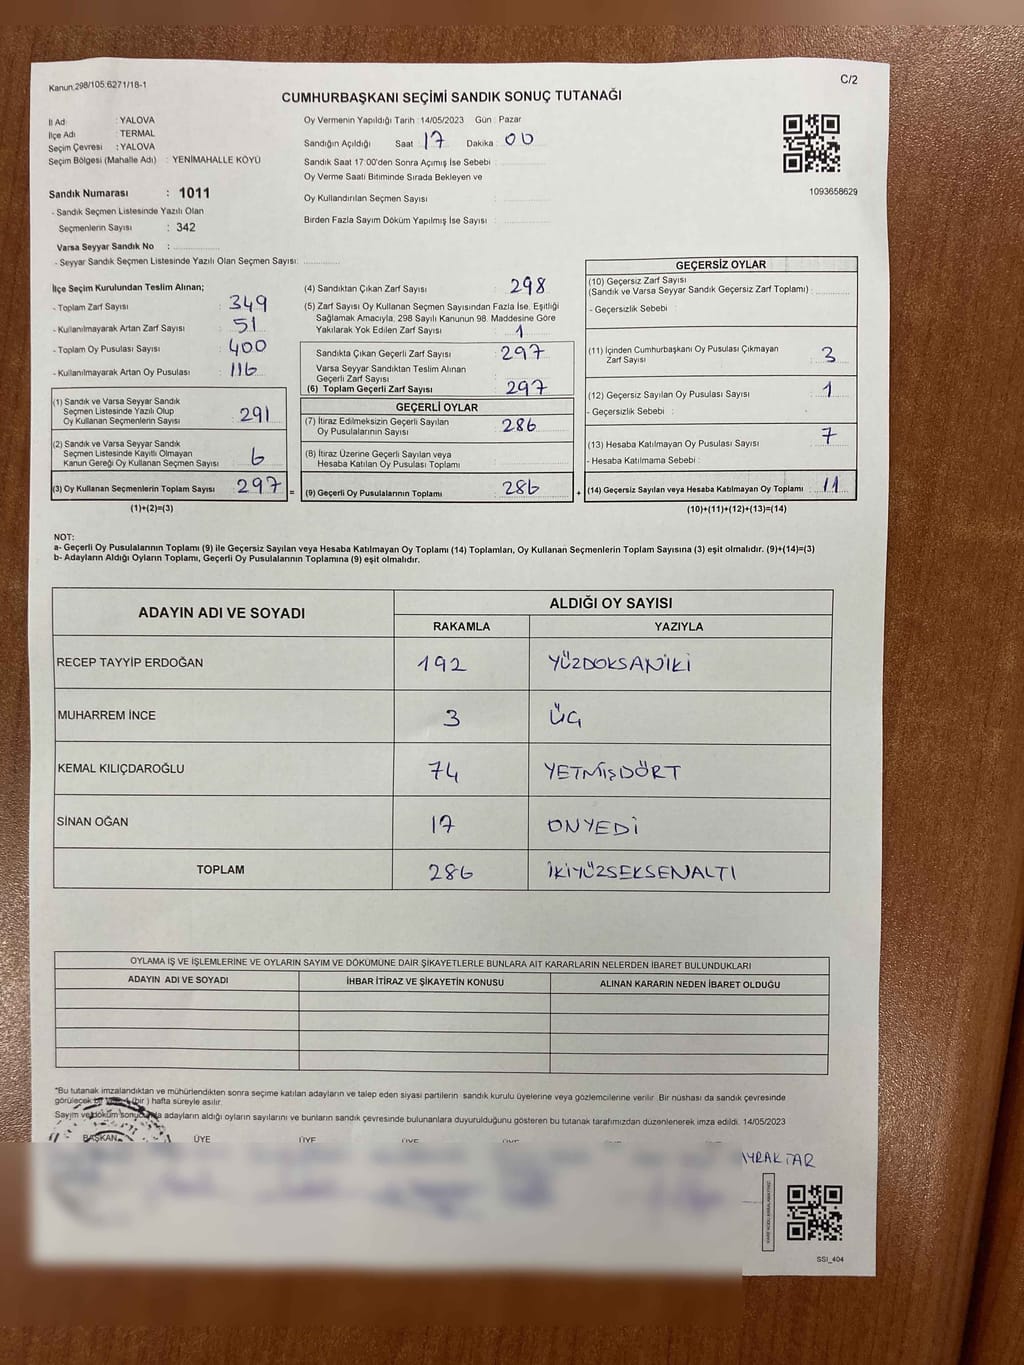 Kanun.298/105.6271/18-1
C/2
CUMHURBAŞKANI SEÇİMİ SANDIK SONUÇ TUTANAĞI
İl Adı : YALOVA
İlçe Adı : TERMAL
Seçim Çevresi : YALOVA
Seçim Bölgesi (Mahalle Adı) : YENİMAHALLE KÖYÜ
Sandık Numarası : 1011
- Sandık Seçmen Listesinde Yazılı Olan
Seçmenlerin Sayısı : 342
Varsa Seyyar Sandık No :
- Seyyar Sandık Seçmen Listesinde Yazılı Olan Seçmen Sayısı:
Oy Vermenin Yapıldığı Tarih : 14/05/2023 Gün : Pazar
Sandığın Açıldığı Saat 17 Dakika 00
Sandık Saat 17:00'den Sonra Açımış İse Sebebi :
Oy Verme Saati Bitiminde Sırada Bekleyen ve
Oy Kullandırılan Seçmen Sayısı :
Birden Fazla Sayım Döküm Yapılmış İse Sayısı :
1093658629
İlçe Seçim Kurulundan Teslim Alınan;
- Toplam Zarf Sayısı : 349
- Kullanılmayarak Artan Zarf Sayısı : 51
- Toplam Oy Pusulası Sayısı : 400
- Kullanılmayarak Artan Oy Pusulası : 116
(1) Sandık ve Varsa Seyyar Sandık
Seçmen Listesinde Yazılı Olup
Oy Kullanan Seçmenlerin Sayısı : 291
(2) Sandık ve Varsa Seyyar Sandık
Seçmen Listesinde Kayıtlı Olmayan
Kanun Gereği Oy Kullanan Seçmen Sayısı : 6
(3) Oy Kullanan Seçmenlerin Toplam Sayısı : 297 =
(1)+(2)=(3)
(4) Sandıktan Çıkan Zarf Sayısı : 298
(5) Zarf Sayısı Oy Kullanan Seçmen Sayısından Fazla İse, Eşitliği
Sağlamak Amacıyla, 298 Sayılı Kanunun 98. Maddesine Göre
Yakılarak Yok Edilen Zarf Sayısı : 1
Sandıkta Çıkan Geçerli Zarf Sayısı : 297
Varsa Seyyar Sandıktan Teslim Alınan
Geçerli Zarf Sayısı
(6) Toplam Geçerli Zarf Sayısı : 297
GEÇERLİ OYLAR
(7) İtiraz Edilmeksizin Geçerli Sayılan
Oy Pusulalarının Sayısı : 286
(8) İtiraz Üzerine Geçerli Sayılan veya
Hesaba Katılan Oy Pusulası Toplamı :
(9) Geçerli Oy Pusulalarının Toplamı : 286 +
GEÇERSİZ OYLAR
(10) Geçersiz Zarf Sayısı
(Sandık ve Varsa Seyyar Sandık Geçersiz Zarf Toplamı) :
- Geçersizlik Sebebi
(11) İçinden Cumhurbaşkanı Oy Pusulası Çıkmayan
Zarf Sayısı : 3
(12) Geçersiz Sayılan Oy Pusulası Sayısı : 1
- Geçersizlik Sebebi :
(13) Hesaba Katılmayan Oy Pusulası Sayısı : 7
- Hesaba Katılmama Sebebi :
(14) Geçersiz Sayılan veya Hesaba Katılmayan Oy Toplamı : 11
(10)+(11)+(12)+(13)=(14)
NOT:
a- Geçerli Oy Pusulalarının Toplamı (9) ile Geçersiz Sayılan veya Hesaba Katılmayan Oy Toplamı (14) Toplamları, Oy Kullanan Seçmenlerin Toplam Sayısına (3) eşit olmalıdır. (9)+(14)=(3)
b- Adayların Aldığı Oyların Toplamı, Geçerli Oy Pusulalarının Toplamına (9) eşit olmalıdır.
ADAYIN ADI VE SOYADI ALDIĞI OY SAYISI
RAKAMLA YAZIYLA
RECEP TAYYİP ERDOĞAN 192 YÜZDOKSANİKİ
MUHARREM İNCE 3 ÜÇ
KEMAL KILIÇDAROĞLU 74 YETMİŞDÖRT
SİNAN OĞAN 17 ONYEDİ
TOPLAM 286 İKİYÜZSEKSENALTI
OYLAMA İŞ VE İŞLEMLERİNE VE OYLARIN SAYIM VE DÖKÜMÜNE DAİR ŞİKAYETLERLE BUNLARA AİT KARARLARIN NELERDEN İBARET BULUNDUKLARI
ADAYIN ADI VE SOYADI İHBAR İTİRAZ VE ŞİKAYETİN KONUSU ALINAN KARARIN NEDEN İBARET OLDUĞU
*Bu tutanak imzalandıktan ve mühürlendikten sonra seçime katılan adayların ve talep eden siyasi partilerin sandık kurulu üyelerine veya gözlemcilerine verilir. Bir nüshası da sandık çevresinde
görülecek bir (bir ) hafta süreyle asılır.
Sayım ve döküm sonucunda adayların aldığı oyların sayılarını ve bunların sandık çevresinde bulunanlara duyurulduğunu gösteren bu tutanak tarafımızdan düzenlenerek imza edildi. 14/05/2023
BAŞKAN ÜYE ÜYE ÜYE ÜYE
AYRAKTAR
SSI_404